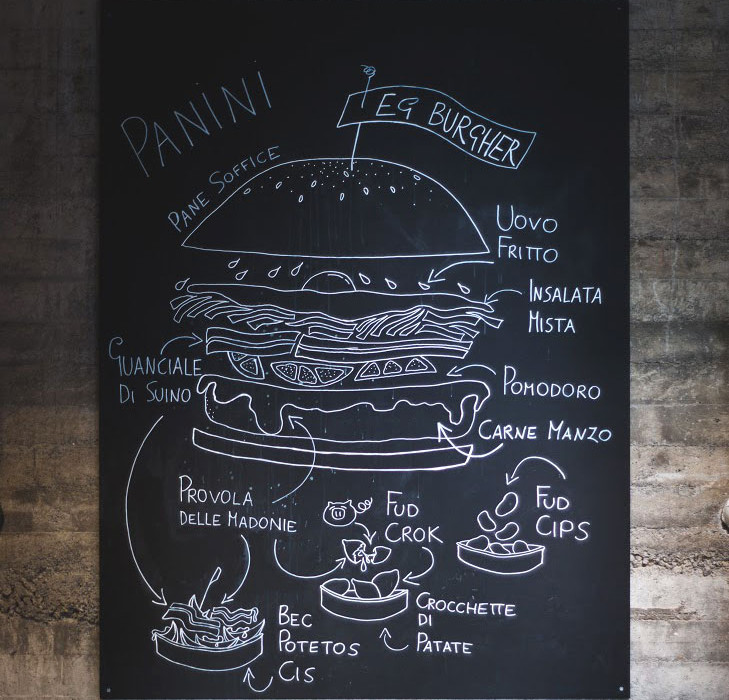 PANINI
EG BURGHER
PANE SOFFICE
UOVO
FRITTO
INSALATA
MISTA
GUANCIALE
DI SUINO
POMODORO
CARNE MANZO
PROVOLA
DELLE MADONIE
FUD
CROK
FUD
CIPS
CROCCHETTE
DI
PATATE
BEC
POTETOS
CIS